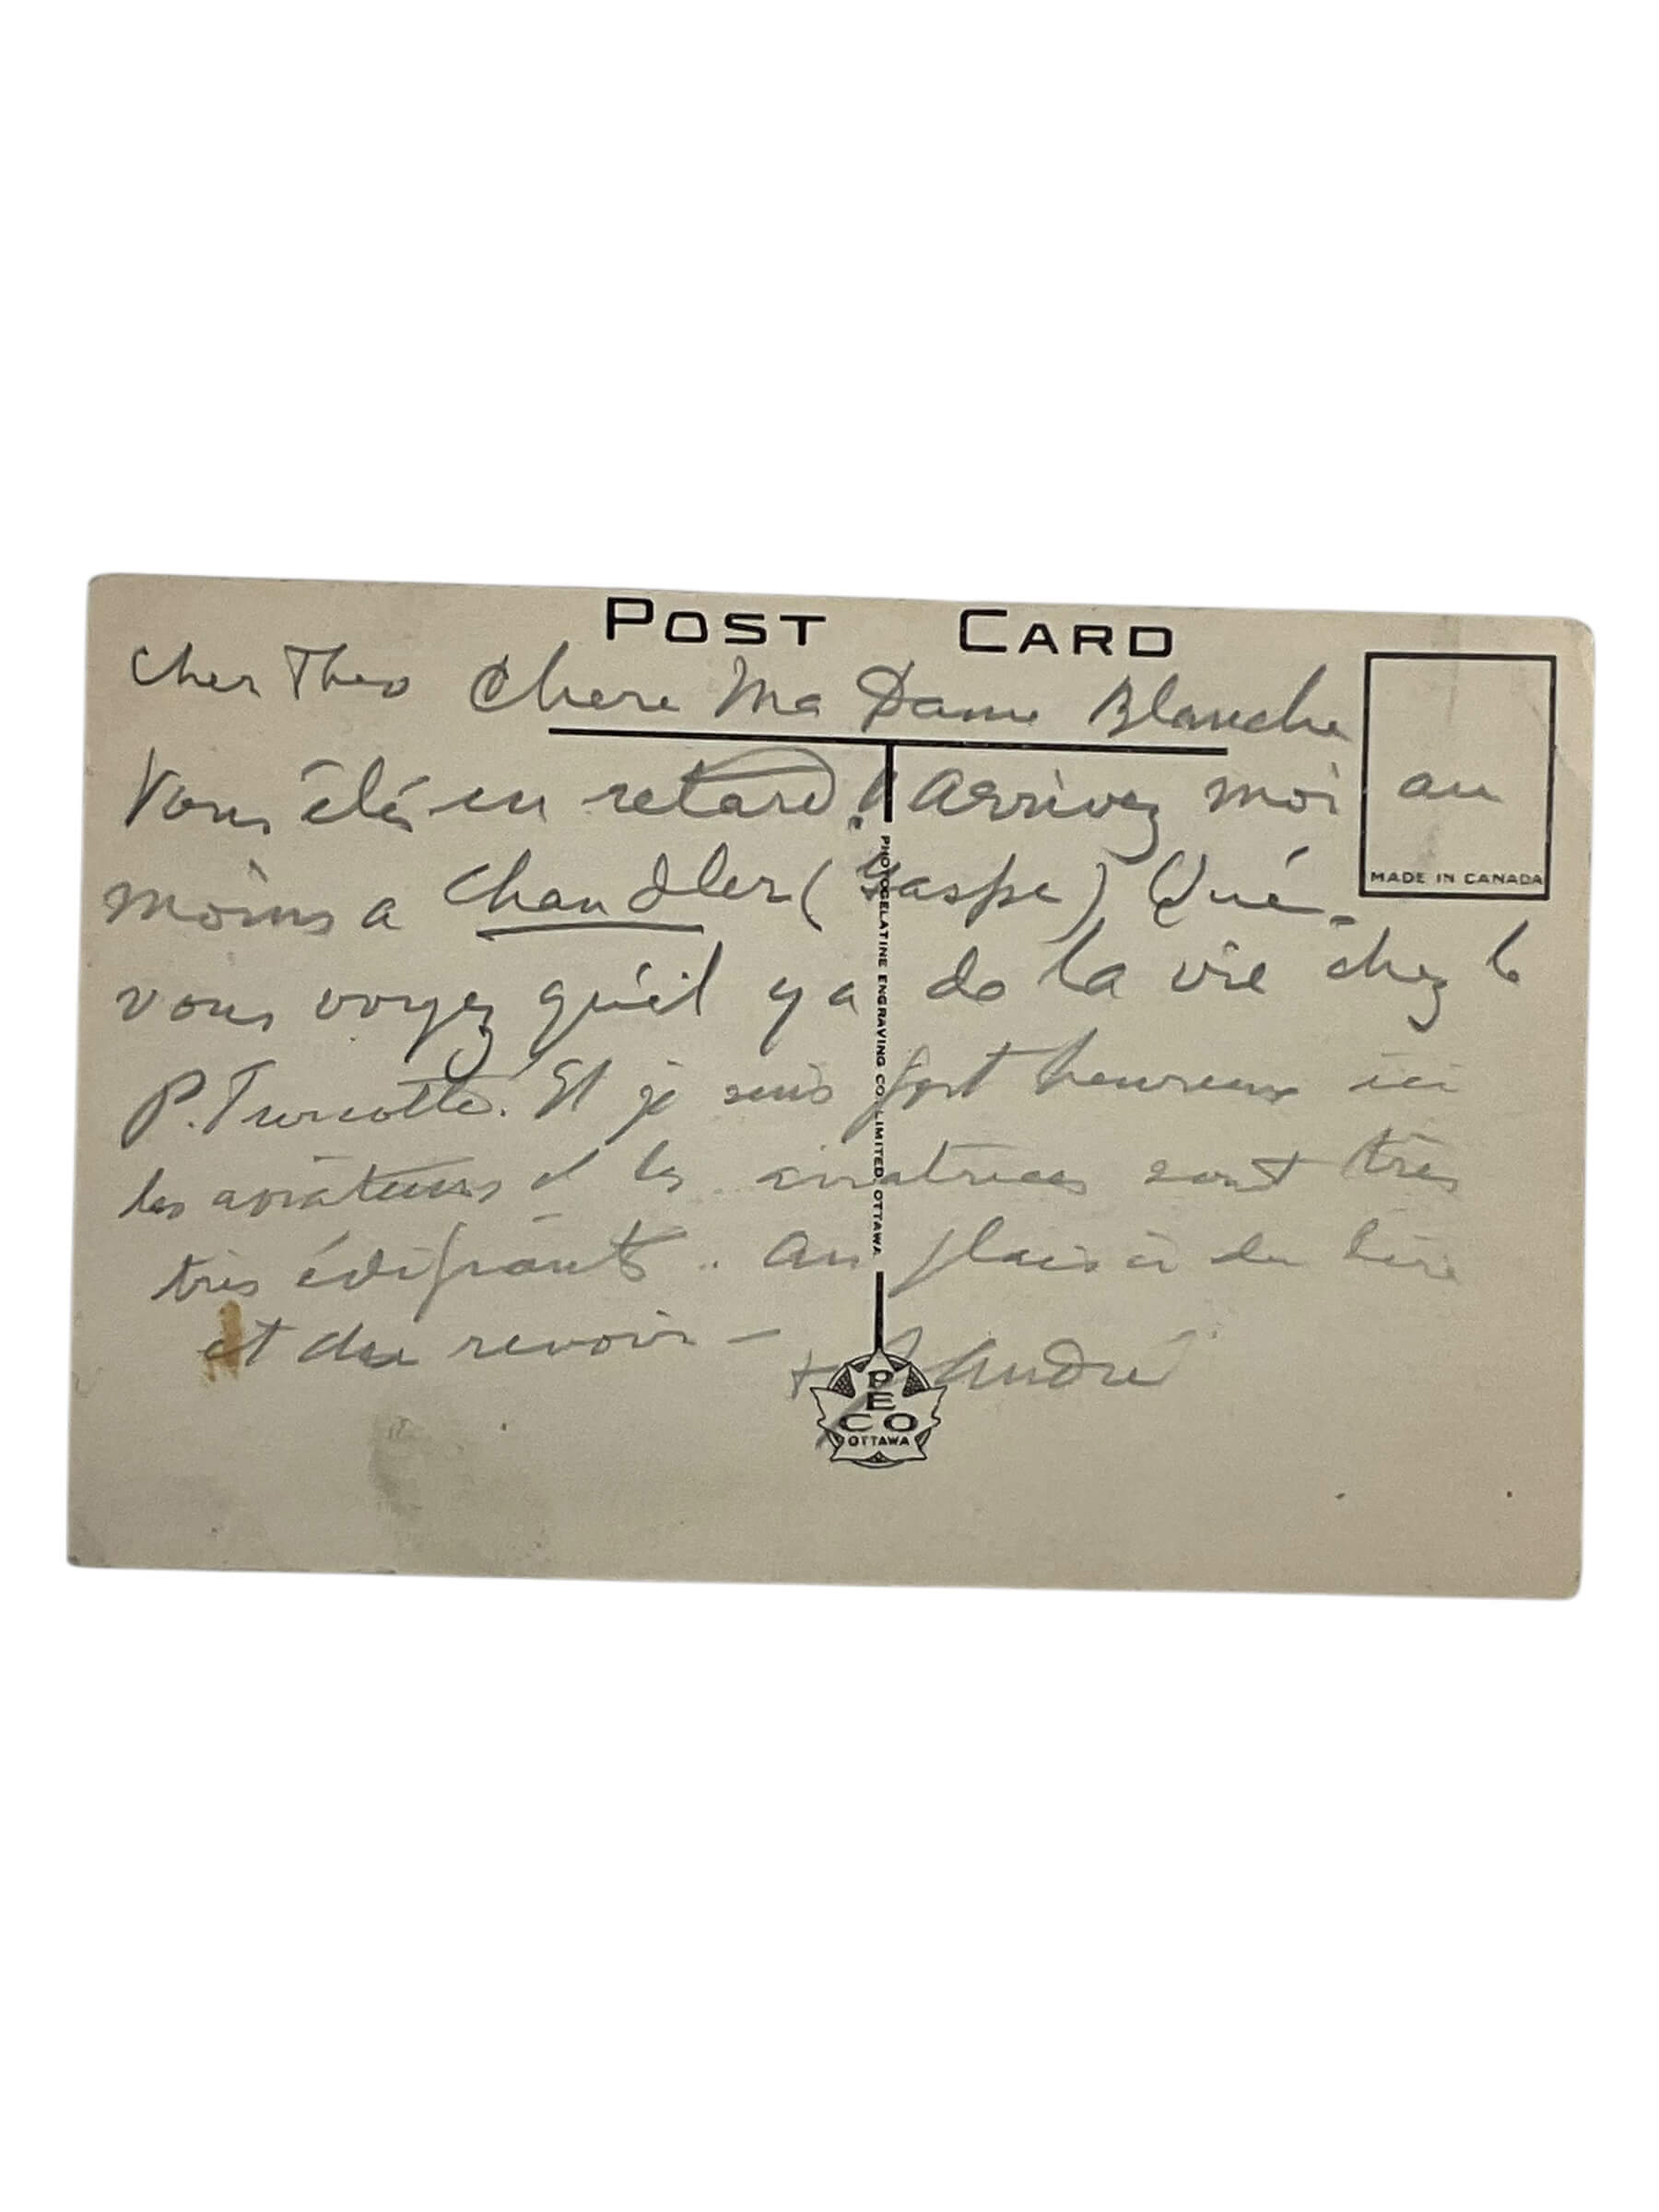 POST CARD
Cher Theo Chere Ma Dame Blanche
Vous êtes en retard! Arrivez moi au
MADE IN CANADA
moins a Chandler (Gaspe) Qué.
vous voyez qu'il y a de la vie chez le
P. Turcotte! Et je suis fort heureux ici
les aviateurs et les aviatrices sont très
très édifiants.. Au plaisir de lire
et de revoir –
André
PHOTOGELATINE ENGRAVING CO. LIMITED. OTTAWA
PECO
OTTAWA